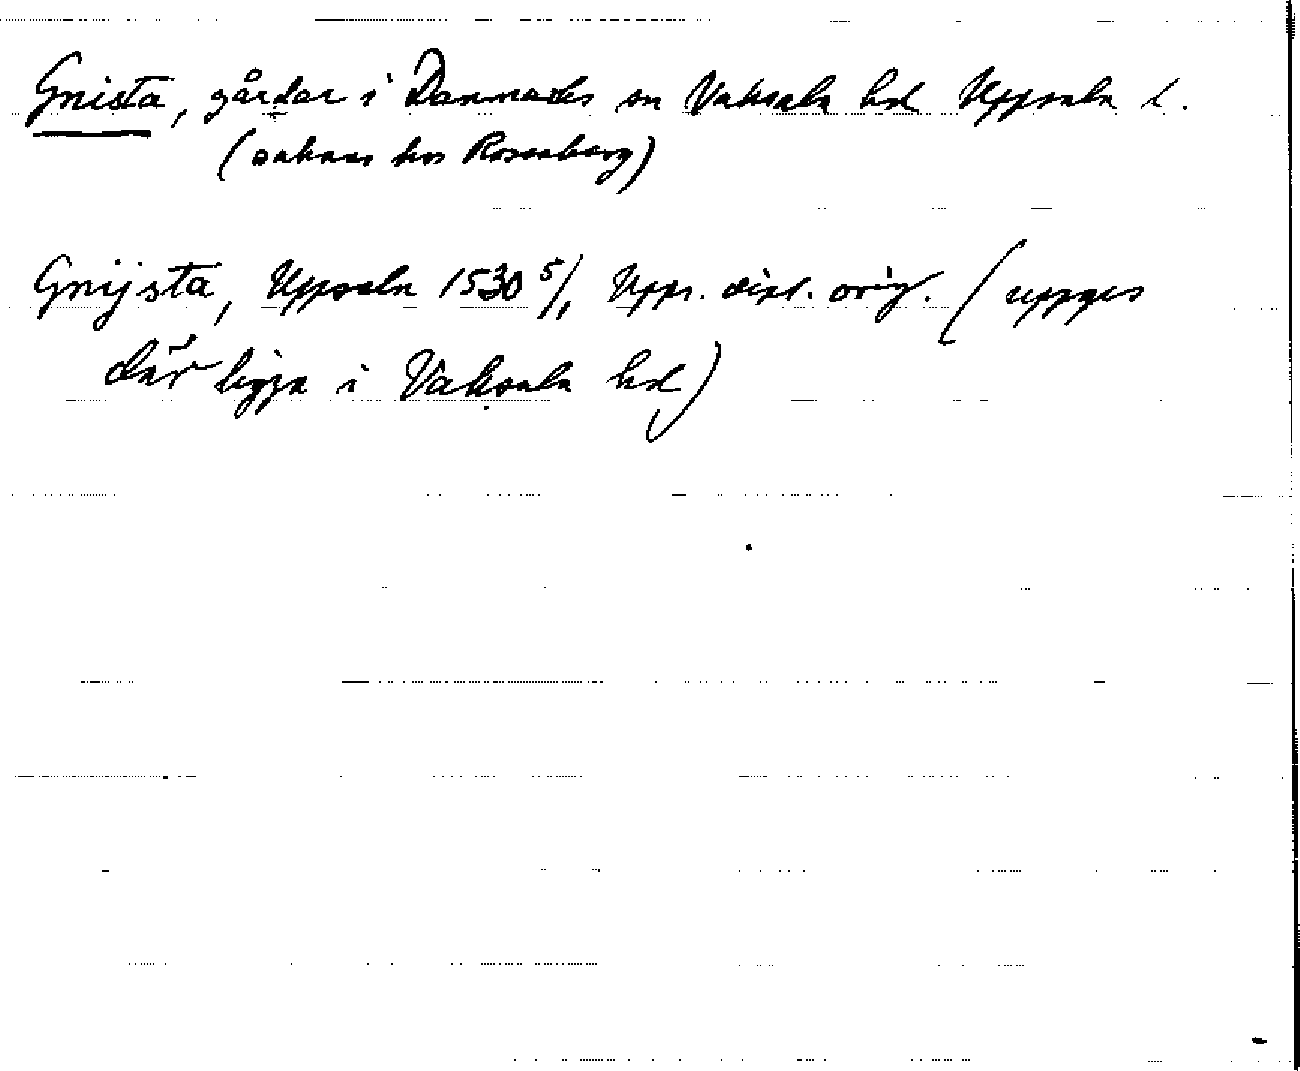 Gnista, gårdar i Danmarks sn Vaksala hd Uppsala l.
(saknas hos Rosenberg)
Gnijsta, Uppsala 1530 5/1 Upps. dipl. orig. (uppges
där ligga i Vaksala hd)